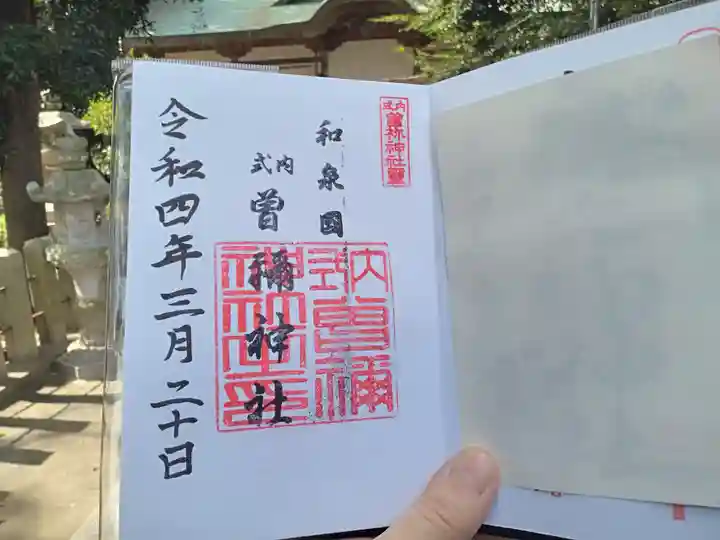 式内曽祢神社璽
和泉國
式内
曽禰神社
式内曽祢神社印
令和四年三月二十日